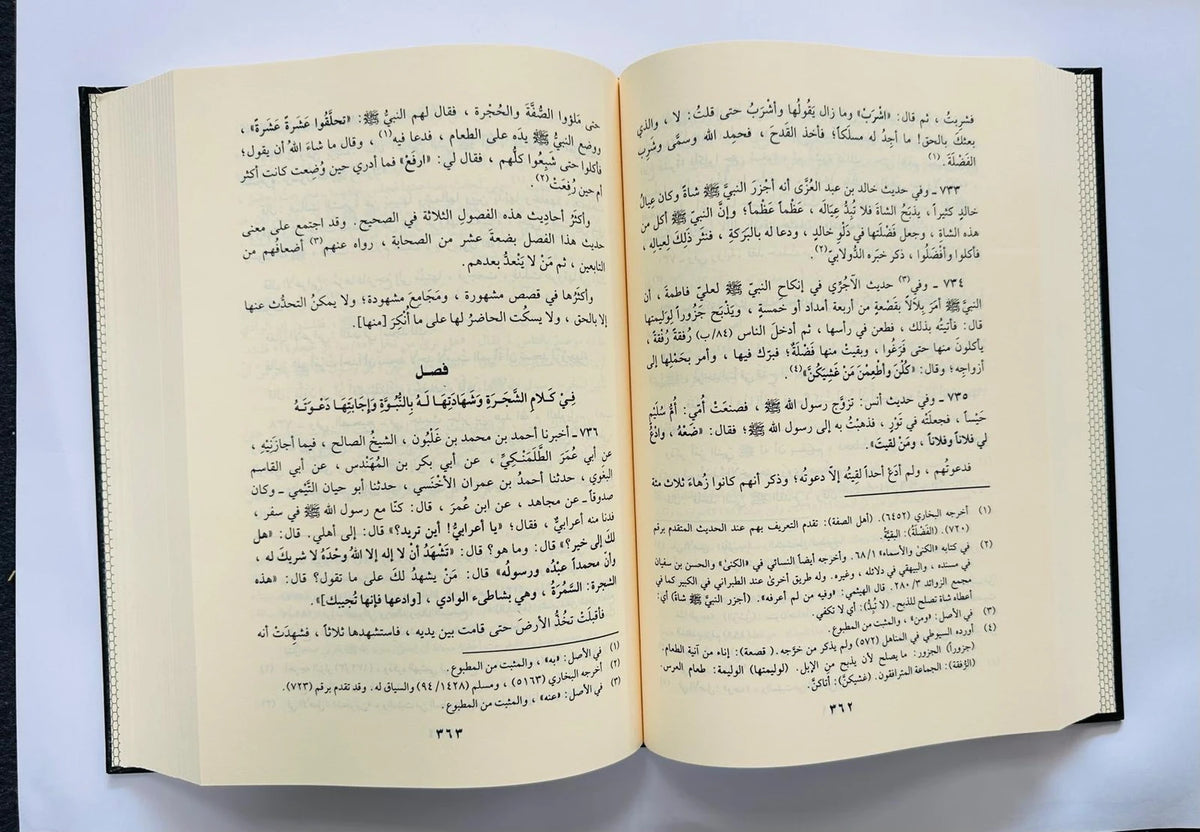 فشربتُ ، ثم قال: «اشْرَبْ» وما زال يَقُولُها وأشْرَبُ حتى قلتُ: لا ، والذي
بعثكَ بالحق! ما أجِدُ له مسلَكاً؛ فأخذ القَدحَ ، فحمِد الله وسمَّى وشَرِبَ
الفَضْلَةَ.(١)
٧٣٣ ـ وفي حديث خالد بن عبد العُزَّى أنه أجْزَرَ النبيَّ ﷺ شاةً وكان عِيالُ
خالدٍ كثيراً ، يذبَحُ الشاةَ فلا تُبِدُّ عِيَالَه ، عَظْماً عَظْماً؛ وإنَّ النبيّ ﷺ أكل من
هذه الشاة ، وجعل فَضْلَتَها في دَلْوِ خالدٍ ، ودعا له بالبَرَكةِ ، فنثَر ذَلكَ لعِيالِه ،
فأكلوا وأفْضَلُوا ، ذكر خبَره الدُّولابيّ(٢).
٧٣٤ ـ وفي(٣) حديث الآجُرِّي في إنكاحِ النبيّ ﷺ لعليّ فاطمةَ ، أن
النبيَّ ﷺ أمَرَ بِلَالاً بقَصْعةٍ من أربعة أمداد أو خمسةٍ ، ويَذْبَح جَزُوراً لوَلِيمتها
قال: فأتيتُه بذلك ، فطعن في رأسها ، ثم أدخلَ الناس (٨٤/ب) رُفْقةً رُفْقةً ،
يأكلونَ منها حتى فَرَغُوا ، وبقيتْ منها فَضْلَةٌ؛ فبرَّك فيها ، وأمر بحَمْلِها إلى
أزواجِه؛ وقال: «كُلْنَ وأَطعِمْنَ مَنْ غَشِيَكُنَّ»(٤).
٧٣٥ ـ وفي حديث أنس: تزوَّج رسول الله ﷺ ، فصنعَتْ أُمِّي: أُمُّ سُلَيْم
حَيْساً ، فجعلَتْه في تَوْرٍ ، فذهبْتُ به إلى رسول الله ﷺ؛ فقال: «ضَعْهُ ، وادْعُ
لي فلاناً وفلاناً ، ومَنْ لقيتَ».
فدعوتُهم ، ولم أدَعْ أحداً لقيتُه إلاّ دعوتُه؛ وذكر أنهم كانوا زُهاءَ ثلاث مئة
(١) أخرجه البخاري (٦٤٥٢). (أهل الصفة): تقدم التعريف بهم عند الحديث المتقدم برقم
(٧٢٠). (الفَضْلَةُ): البقيَّةُ
(٢) في كتابه «الكنى والأسماء» ٦٨/١. وأخرجه أيضاً النسائي في «الكنى» والحسن بن سفيان
في مسنده ، والبيهقي في دلائله ، وغيره. وله طريق أخرى عند الطبراني في الكبير كما في
مجمع الزوائد ٢٨٠/٣. قال الهيثمي: «وفيه من لم أعرفه». (أجزر النبيَّ ﷺ شاة) أي:
أعطاه شاة تصلح للذبح. (لا تُبِدُّ): أي لا تكفي.
(٣) في الأصل: «ومن» ، والمثبت من المطبوع.
(٤) أورده السيوطي في المناهل (٥٧٢) ولم يذكر من خرَّجه. (قصعة): إناء من آنية الطعام.
(جزوراً) الجزور: ما يصلح لأن يذبح من الإبل. (لوليمتها) الوليمة: طعام العرس.
(الرُّفقة): الجماعة المترافقون. (غشيكنَّ): أتاكنَّ.
٣٦٢
حتى مَلؤوا الصُّفَّةَ والحُجْرة ، فقال لهم النبيُّ ﷺ: «تحلَّقُوا عَشَرةً عَشَرةً» ،
ووضع النبيُّ ﷺ يدَه على الطعام ، فدعا فيه(١) ، وقال ما شاءَ اللهُ أن يقول؛
فأكلوا حتى شَبِعُوا كلُّهم ، فقال لي: «ارفَعْ» فما أدري حين وُضِعت كانت أكثر
أم حين رُفِعَتْ(٢).
وأكثرُ أحاديث هذه الفصولِ الثلاثة في الصحيح. وقد اجتمع على معنى
حديث هذا الفصل بضعةَ عشر من الصحابة ، رواه عنهم(٣) أضعافُهم من
التابعين ، ثم مَنْ لا يَنْعدُّ بعدهم.
وأكثرُها في قصص مشهورة ، ومَجَامِعَ مشهودة؛ ولا يمكنُ التحدُّث عنها
إلا بالحق ، ولا يسكُت الحاضرُ لها على ما أُنكِرَ [منها].
فصل
فِيْ كَلَامِ الشَّجَرَةِ وَشَهَادَتِهَا لَهُ بِالنُّبُوَّةِ وَإِجَابَتِهَا دَعْوَتَهُ
٧٣٦ ـ أخبرنا أحمد بن محمد بن غَلْبُون ، الشيخُ الصالح ، فيما أجازَنِيْهِ ،
عن أبي عُمَرَ الطَّلَمَنْكِيِّ ، عن أبي بكر بن المُهَنْدس ، عن أبي القاسم
البغوي ، حدثنا أحمدُ بن عمران الأخْنَسي ، حدثنا أبو حيان التَّيْمي ـ وكان
صدوقاً ـ عن مجاهد ، عن ابن عُمَرَ ، قال: كنّا مع رسول الله ﷺ في سفر ،
فدنا منه أعرابيٌّ ، فقال؛ «يا أعرابيُّ! أين تريد؟» قال: إلى أهلي. قال: «هل
لكَ إلى خير؟» قال: وما هو؟ قال: «تَشْهَدُ أنْ لا إله إلا اللهُ وحْدَهُ لا شريكَ له ،
وأن محمداً عبْدُه ورسولُه» قال: مَنْ يشهدُ لكَ على ما تقول؟ قال: «هذه
الشجرة: السَّمُرَةُ ، وهي بشاطىء الوادي ، [وادعها فإنها تُجيبك]».
فأقبلَتْ تَخُدُّ الأرضَ حتى قامت بين يديه ، فاستشهدها ثلاثاً ، فشهدَتْ أنه
(١) في الأصل: «به» ، والمثبت من المطبوع.
(٢) أخرجه البخاري (٥١٦٣) ، ومسلم (٩٤/١٤٢٨) والسياق له. وقد تقدم برقم (٧٢٣).
(٣) في الأصل: «عنه» ، والمثبت من المطبوع.
٣٦٣